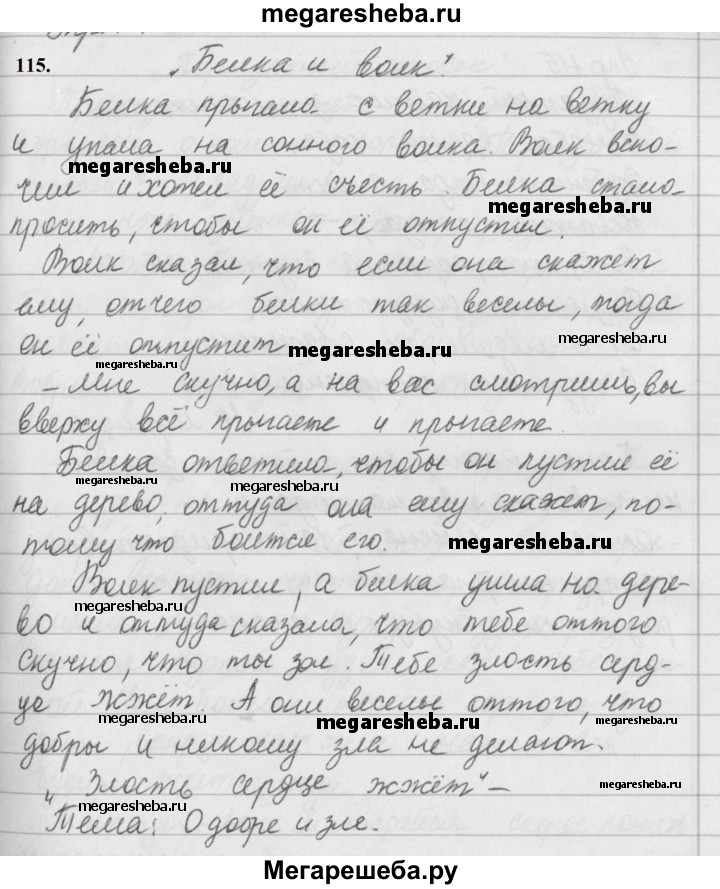 megaresheba.ru
115. „Белка и волк".
Белка прыгала с ветки на ветку
и упала на сонного волка. Волк вско-
megaresheba.ru
чил и хотел её съесть. Белка стала
megaresheba.ru
просить, чтобы он её отпустил.
Волк сказал, что если она скажет
ему, отчего белки так веселы, тогда
megaresheba.ru
он её отпустит
megaresheba.ru
megaresheba.ru
– Мне скучно, а на вас смотришь, вы
вверху всё прыгаете и прыгаете.
Белка ответила, чтобы он пустил её
megaresheba.ru
megaresheba.ru
на дерево, оттуда она ему скажет, по-
тому что боится его.
megaresheba.ru
Волк пустил, а белка ушла на дере-
megaresheba.ru
во и оттуда сказала, что тебе оттого
скучно, что ты зол. Тебе злость серд-
це жжёт. А они веселы оттого, что
megaresheba.ru
megaresheba.ru
megaresheba.ru
добры и никому зла не делают.
„Злость сердце жжёт" –
megaresheba.ru
Тема: О добре и зле.
Мегарешеба.ру